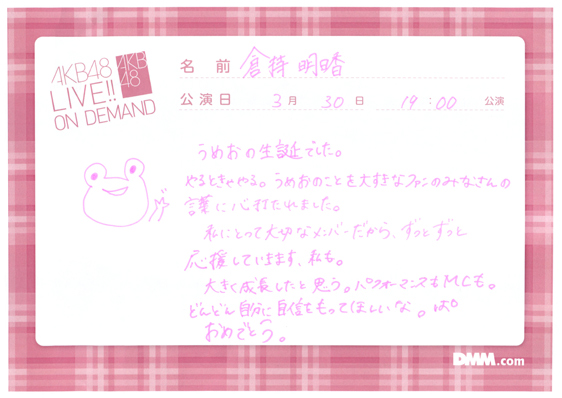 AKB48
LIVE!!
ON DEMAND
AKB
48
名 前 倉持明日香
公演日 3月 30日 19:00 公演
うめおの生誕でした。
やるときゃやる。うめおのことを大すきなファンのみなさんの
言葉に心打たれました。
私にとって大切なメンバーだから、ずっとずっと
応援していきます、私も。
大きく成長したと思う。パフォーマンスもMCも。
どんどん自分に自信をもってほしいな。
おめでとう。
DMM.com